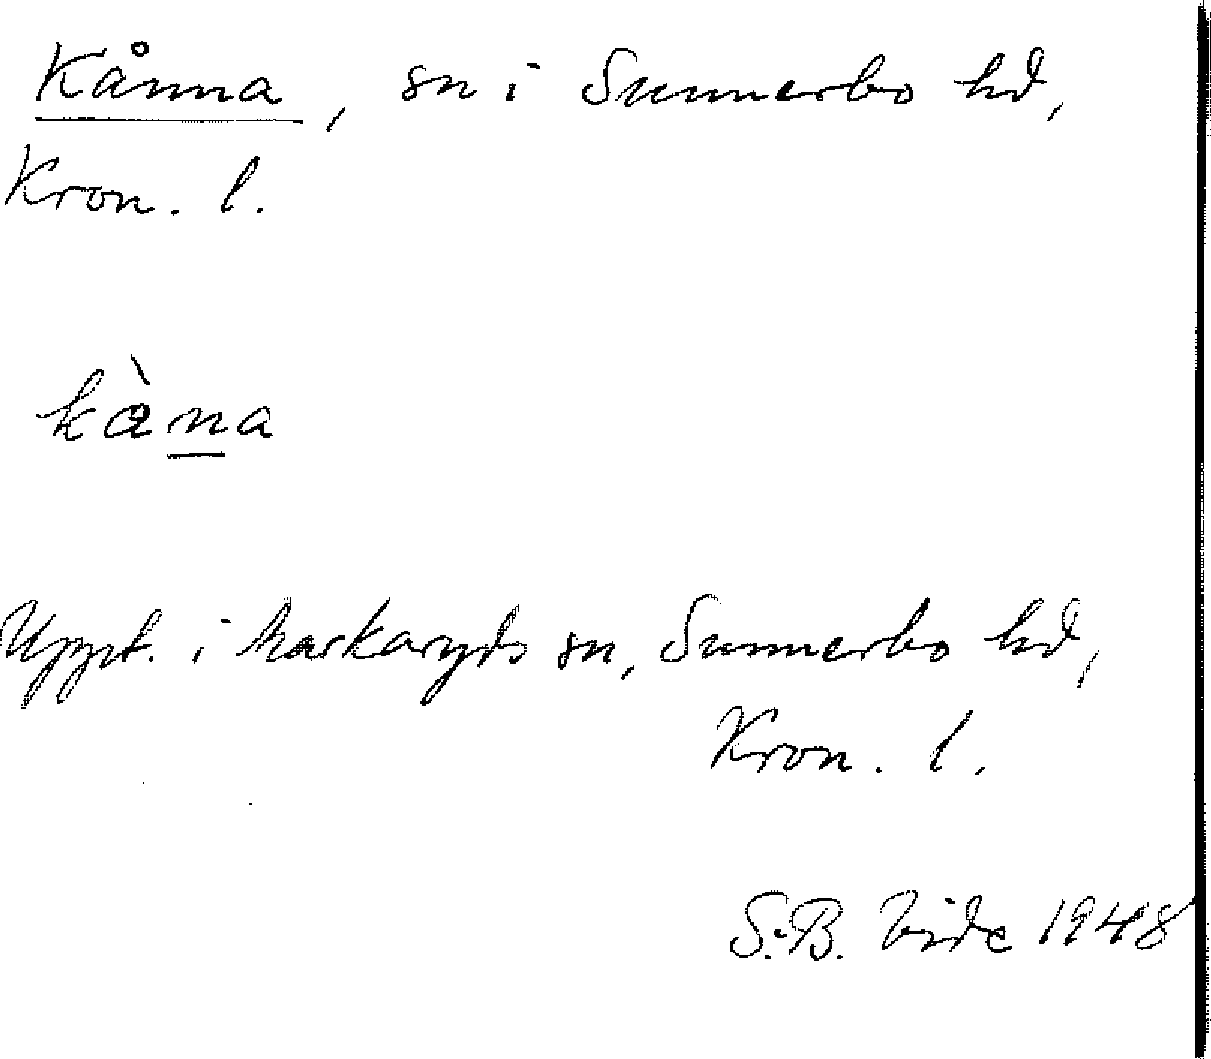 Kånna, sn i Sunnerbo hd,
Kron. l.
kàna
Uppt. i Markaryds sn, Sunnerbo hd,
Kron. l.
S.B. Vide 1948